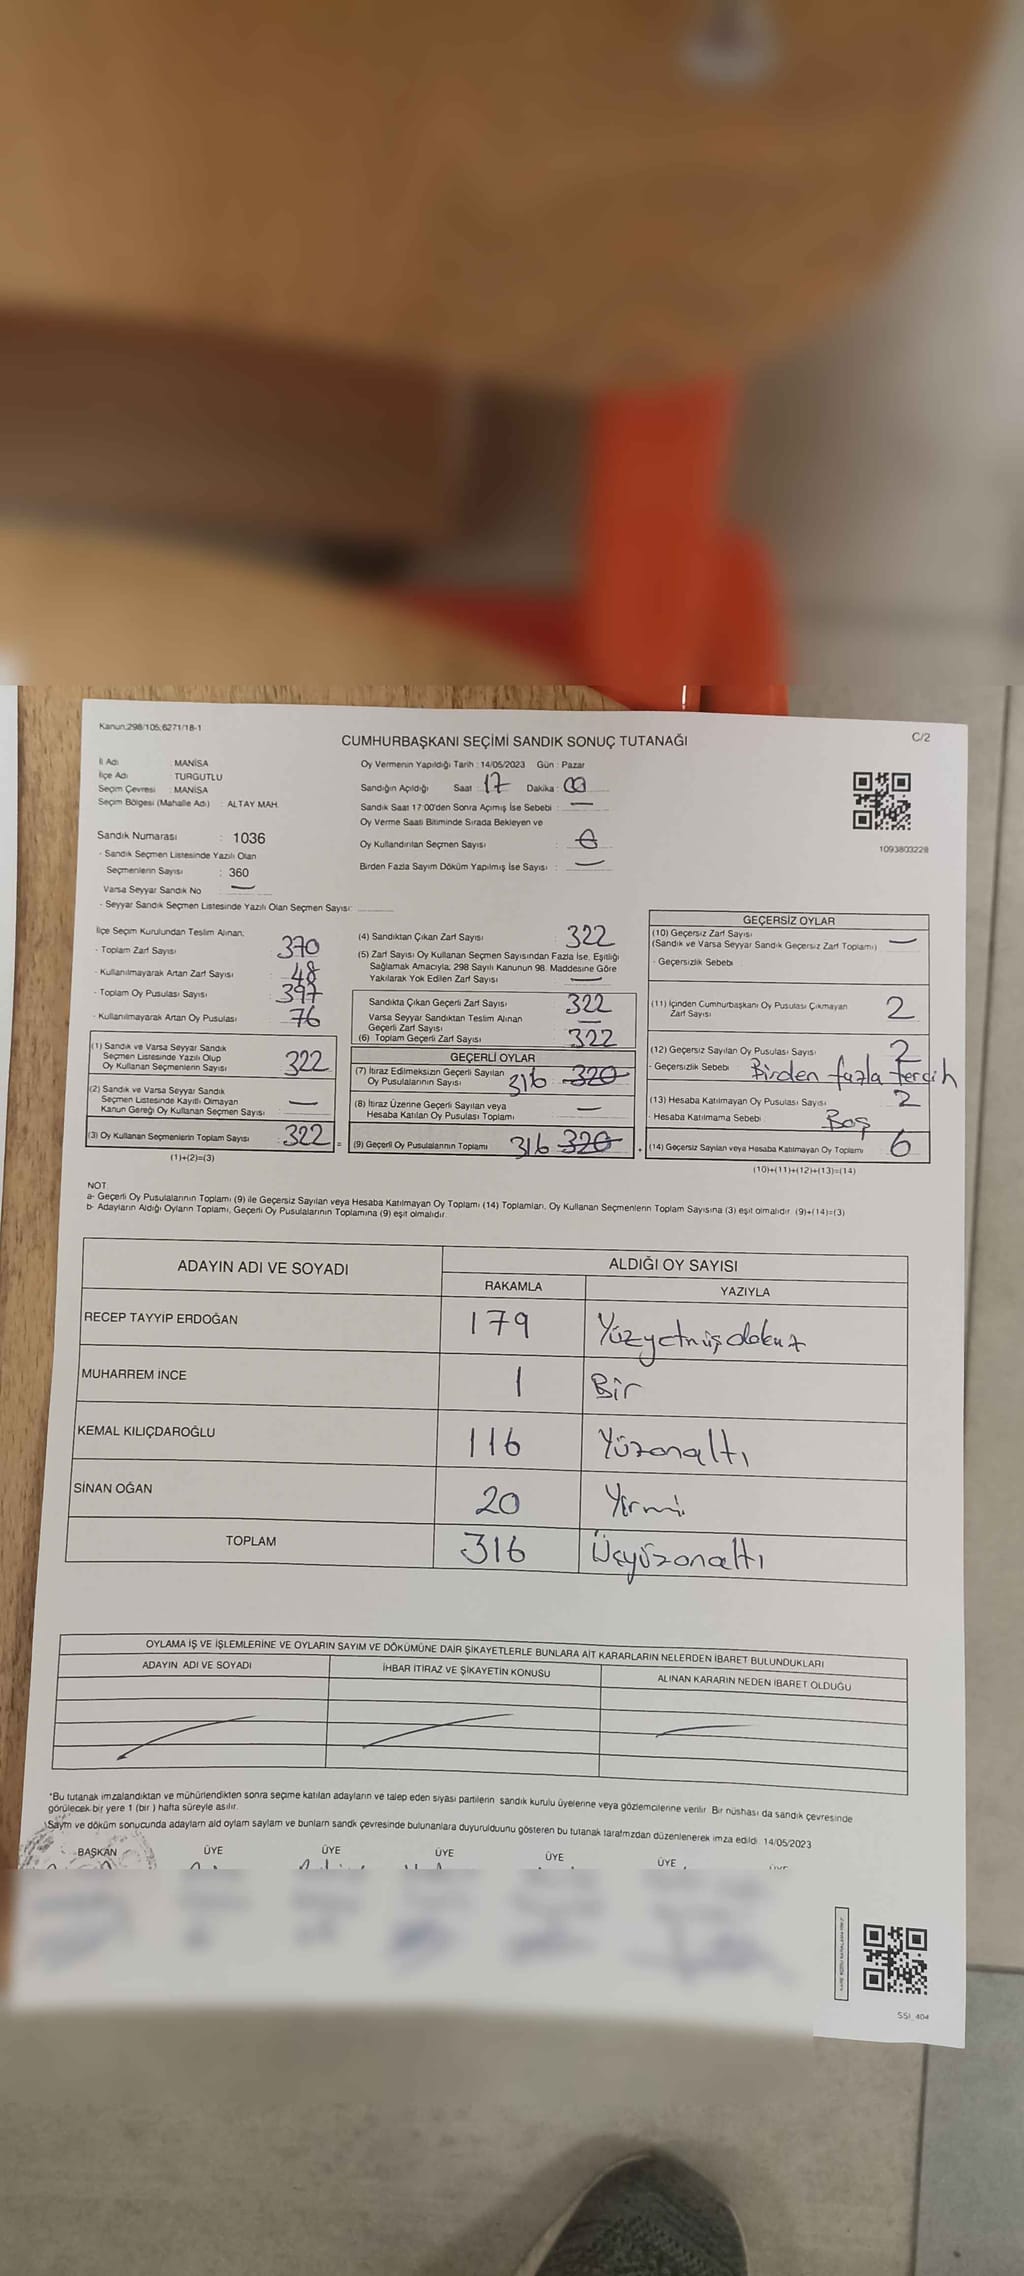 Kanun:298/105;6271/18-1
C/2
CUMHURBAŞKANI SEÇİMİ SANDIK SONUÇ TUTANAĞI
İl Adı : MANİSA
İlçe Adı : TURGUTLU
Seçim Çevresi : MANİSA
Seçim Bölgesi (Mahalle Adı) : ALTAY MAH.
Sandık Numarası : 1036
- Sandık Seçmen Listesinde Yazılı Olan
Seçmenlerin Sayısı : 360
Varsa Seyyar Sandık No —
- Seyyar Sandık Seçmen Listesinde Yazılı Olan Seçmen Sayısı:
Oy Vermenin Yapıldığı Tarih : 14/05/2023 Gün : Pazar
Sandığın Açıldığı Saat : 17 Dakika : 00
Sandık Saat 17:00'den Sonra Açılmış İse Sebebi : —
Oy Verme Saati Bitiminde Sırada Bekleyen ve
Oy Kullandırılan Seçmen Sayısı : 0
Birden Fazla Sayım Döküm Yapılmış İse Sayısı : —
1093803228
İlçe Seçim Kurulundan Teslim Alınan:
- Toplam Zarf Sayısı : 370
- Kullanılmayarak Artan Zarf Sayısı : 48
- Toplam Oy Pusulası Sayısı : 397
- Kullanılmayarak Artan Oy Pusulası : 76
(1) Sandık ve Varsa Seyyar Sandık
Seçmen Listesinde Yazılı Olup
Oy Kullanan Seçmenlerin Sayısı 322
(2) Sandık ve Varsa Seyyar Sandık
Seçmen Listesinde Kayıtlı Olmayan
Kanun Gereği Oy Kullanan Seçmen Sayısı —
(3) Oy Kullanan Seçmenlerin Toplam Sayısı 322 =
(1)+(2)=(3)
(4) Sandıktan Çıkan Zarf Sayısı : 322
(5) Zarf Sayısı Oy Kullanan Seçmen Sayısından Fazla İse, Eşitliği
Sağlamak Amacıyla; 298 Sayılı Kanunun 98. Maddesine Göre
Yakılarak Yok Edilen Zarf Sayısı —
Sandıkta Çıkan Geçerli Zarf Sayısı 322
Varsa Seyyar Sandıktan Teslim Alınan
Geçerli Zarf Sayısı —
(6) Toplam Geçerli Zarf Sayısı 322
GEÇERLİ OYLAR
(7) İtiraz Edilmeksizin Geçerli Sayılan
Oy Pusulalarının Sayısı 316 320
(8) İtiraz Üzerine Geçerli Sayılan veya
Hesaba Katılan Oy Pusulası Toplamı —
(9) Geçerli Oy Pusulalarının Toplamı 316 320
GEÇERSİZ OYLAR
(10) Geçersiz Zarf Sayısı
(Sandık ve Varsa Seyyar Sandık Geçersiz Zarf Toplamı) —
- Geçersizlik Sebebi
(11) İçinden Cumhurbaşkanı Oy Pusulası Çıkmayan
Zarf Sayısı 2
(12) Geçersiz Sayılan Oy Pusulası Sayısı 2
- Geçersizlik Sebebi Birden fazla tercih
(13) Hesaba Katılmayan Oy Pusulası Sayısı 2
- Hesaba Katılmama Sebebi Boş
(14) Geçersiz Sayılan veya Hesaba Katılmayan Oy Toplamı 6
(10)+(11)+(12)+(13)=(14)
NOT:
a- Geçerli Oy Pusulalarının Toplamı (9) ile Geçersiz Sayılan veya Hesaba Katılmayan Oy Toplamı (14) Toplamları, Oy Kullanan Seçmenlerin Toplam Sayısına (3) eşit olmalıdır. (9)+(14)=(3)
b- Adayların Aldığı Oyların Toplamı, Geçerli Oy Pusulalarının Toplamına (9) eşit olmalıdır.
ADAYIN ADI VE SOYADI ALDIĞI OY SAYISI
RAKAMLA YAZIYLA
RECEP TAYYİP ERDOĞAN 179 Yüzyetmişdokuz
MUHARREM İNCE 1 Bir
KEMAL KILIÇDAROĞLU 116 Yüzonaltı
SİNAN OĞAN 20 Yirmi
TOPLAM 316 Üçyüzonaltı
OYLAMA İŞ VE İŞLEMLERİNE VE OYLARIN SAYIM VE DÖKÜMÜNE DAİR ŞİKAYETLERLE BUNLARA AİT KARARLARIN NELERDEN İBARET BULUNDUKLARI
ADAYIN ADI VE SOYADI İHBAR İTİRAZ VE ŞİKAYETİN KONUSU ALINAN KARARIN NEDEN İBARET OLDUĞU
*Bu tutanak imzalandıktan ve mühürlendikten sonra seçime katılan adayların ve talep eden siyasi partilerin sandık kurulu üyelerine veya gözlemcilerine verilir. Bir nüshası da sandık çevresinde
görülecek bir yere 1 (bir ) hafta süreyle asılır.
Sayım ve döküm sonucunda adayların ald oyların sayların ve bunların sandk çevresinde bulunanlara duyurulduunu gösteren bu tutanak tarafmzdan düzenlenerek imza edildi. 14/05/2023
BAŞKAN ÜYE ÜYE ÜYE ÜYE ÜYE
SSI_404